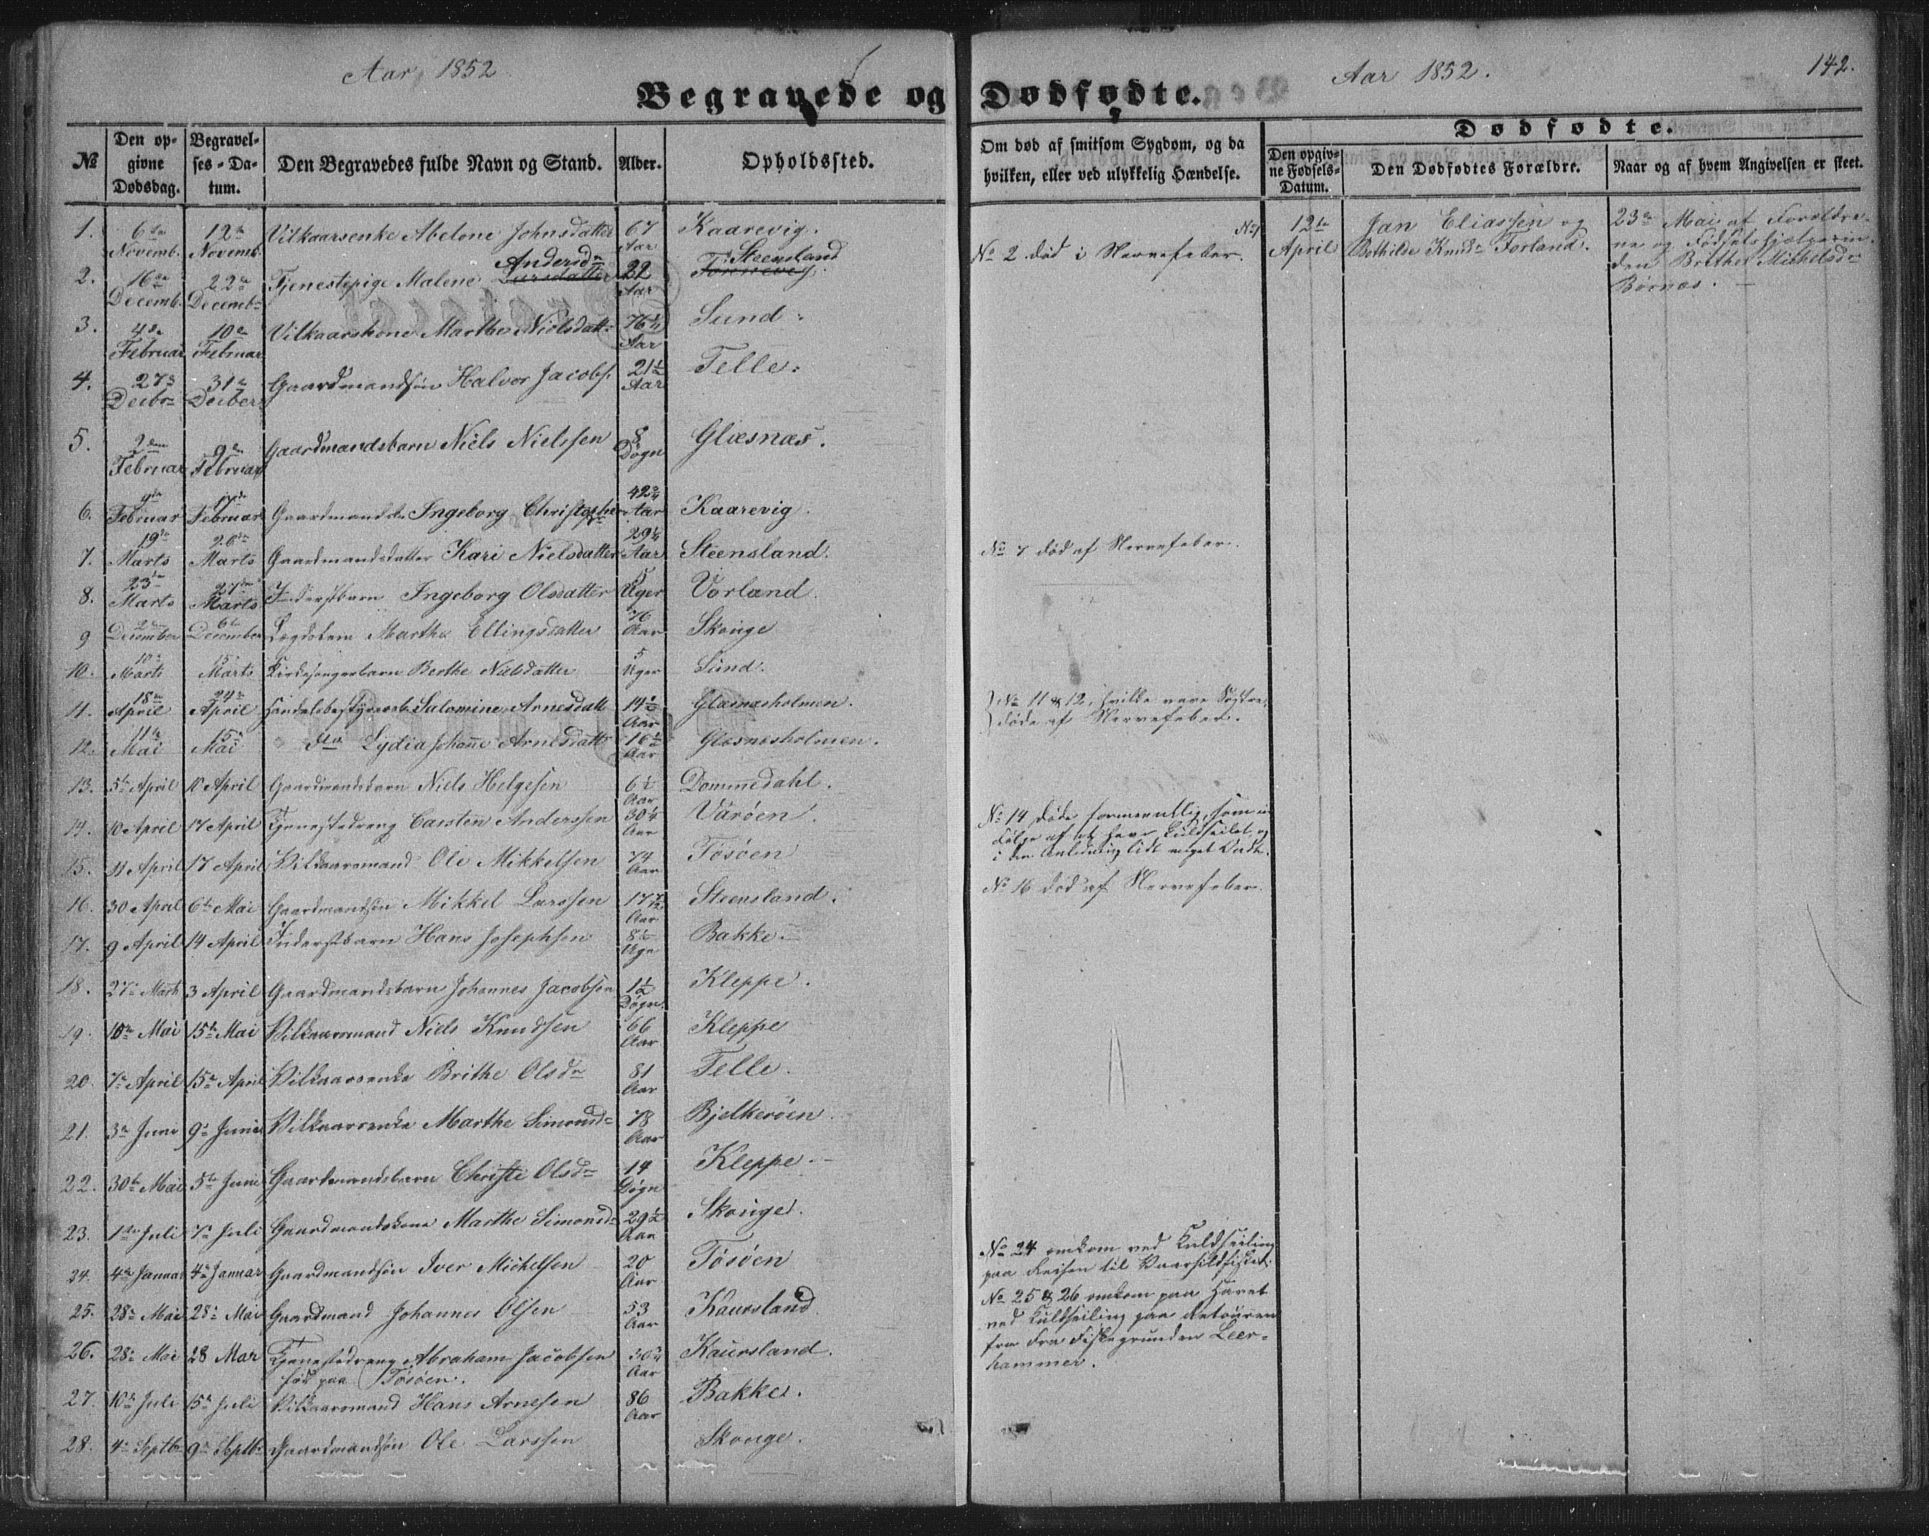 Aar 1852
Begravede og
№
Den op-
givne
Dødsdag.
Begravel-
ses-Da-
tum.
Den Begravedes fulde Navn og Stand.
Alder.
Opholdssted.
1. 6te Novemb. 12te Novemb. Vilkaarsenke Abelone Johnsdatter 67 Aar Kaarevig.
2. 16de Decemb. 22de Decembr Tjenestepige Malene Larsdatter Andersdr 22 Aar Steensland
3. 4de Februar 10de Februar Vilkaarskone Marthe Nielsdattr 76½ Aar Sund.
4. 27de Decbr 31te Decbr Gaardmandsøn Halvor Jacobs. 21½ Aar Telle.
5. 2den Februar 9de Februar Gaardmandsbarn Niels Nielssen 8 Døgn Glæsnæs.
6. Februar Februar Ingeborg Christopher Aar Kaarevig.
7. 19de Marts 26de Marts Gaardmandsdatter Kari Nielsdatter 29¼ Aar Steensland.
8. 23de Marts 27de Marts Inderstbarn Ingeborg Olsdatter 5 Uger Vorland.
9 2den December 6te December Lægdslem Marthe Ellingsdatter 76 Aar Skouge
10. 10de Marts 15de Marts Kirkesangerbarn Berthe Nielsdatter 5 Uger Sund.
11. 18de April 24de April Salamine Arnesdatt 14 Aar Glæsnæsholmen.
12. 11te Mai 15de Mai dto Lydia Johanne Arnesdattr 16½ Aar Glæsnæsholmen.
13. 5te April 10 April Gaardmandsbarn Niels Helgesen 6½ Aar Dommedahl.
14. 10 April 17 April Tjenestedreng Carsten Anderssen 30¼ Aar Varöen.
15. 11 April 17 April Vilkaarsmand Ole Mikkelsen 74 Aar Tösöen
16. 30 April 6te Mai Gaardmandsön Mikkel Larssen 17 Aar Steensland.
17. 9 April 14 April Inderstbarn Hans Josephsen 8½ Uge Bakke
18. 27de Marts 3 April Gaardmandsbarn Johannes Jacobsen 1½ Døgn Kleppe.
19. 10de Mai 15de Mai Vilkaarsmand Niels Knudsen 66 Aar Kleppe
20. 7de April 15de April Vilkaarsenke Brithe Olsdr 81 Aar Telle.
21. 3de Juni 9de Juni Vilkaarsenke Marthe Simonsdr 78 Aar Bjelkeröen
22. 30te Mai 5te Juni Gaardmandsbarn Christi Olsdr 14 Døgn Kleppe.
23. 1ste Juli 7de Juli Gaardmandskone Marthe Simonsdr 29½ Aar Skouge.
24. 4de Januar 4de Januar Gaardmandsön Iver Michelsen 20 Aar Tösöen
25. 28de Mai 28de Mai Gaardmand Johannes Olsen 53 Aar Kaursland
26. 28de Mai 28 Mai Tjenestedreng Abraham Jacobsen 30¼ Aar Kaursland.
född paa Tösöen.
27. 10de Juli 15de Juli Vilkaarsmand Hans Arnesen 86 Aar Bakke.
28. 4de Septbr 9de Septbr Gaardmandsön Ole Larssen Skouge.
Aar 1852.
142.
Dødfødte.
Om død af smitsom Sygdom, og da
hvilken, eller ved ulykkelig Hændelse.
Dødfødte.
Den opgiv-
ne Fødsels-
Datum.
Den Dødfødtes Forældre.
Naar og af hvem Angivelsen er skeet.
No 1 12te April Jan Eliassen og Bothilde Knudsdr Forland.
23de Mai af Forældre-
ne og Födselshjelperin-
den Brithe Mikkelsdr
Börnæs.
No 2 död i Nervefeber.
No 7 död af Nervefeber.
No 11 & 12, hvilke vare Söstre,
döde af Nervefeber.
No 14 döde formeentlig som en
Fölge af at have kuldseilet, og
i den Anledning lidt meget
No 16 död af Nervefeber.
No 24 omkom ved Kuldseiling
paa Reisen til Vaarsildfisket.
No 25 & 26 omkom paa Havet
ved Kuldseiling paa Retouren
fra Fiskegrunden Leer-
hammer.